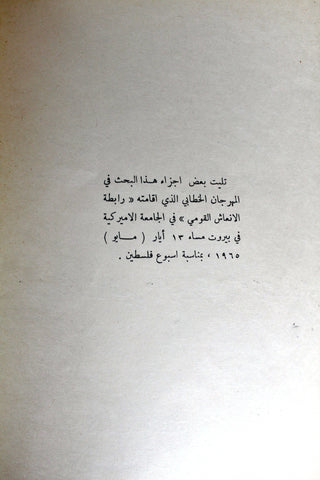 تليت بعض اجزاء هذا البحث في
المهرجان الخطابي الذي اقامته « رابطة
الانعاش القومي » في الجامعة الاميركية
في بيروت مساء ١٣ أيار ( مايو )
١٩٦٥ ، بمناسبة اسبوع فلسطين .